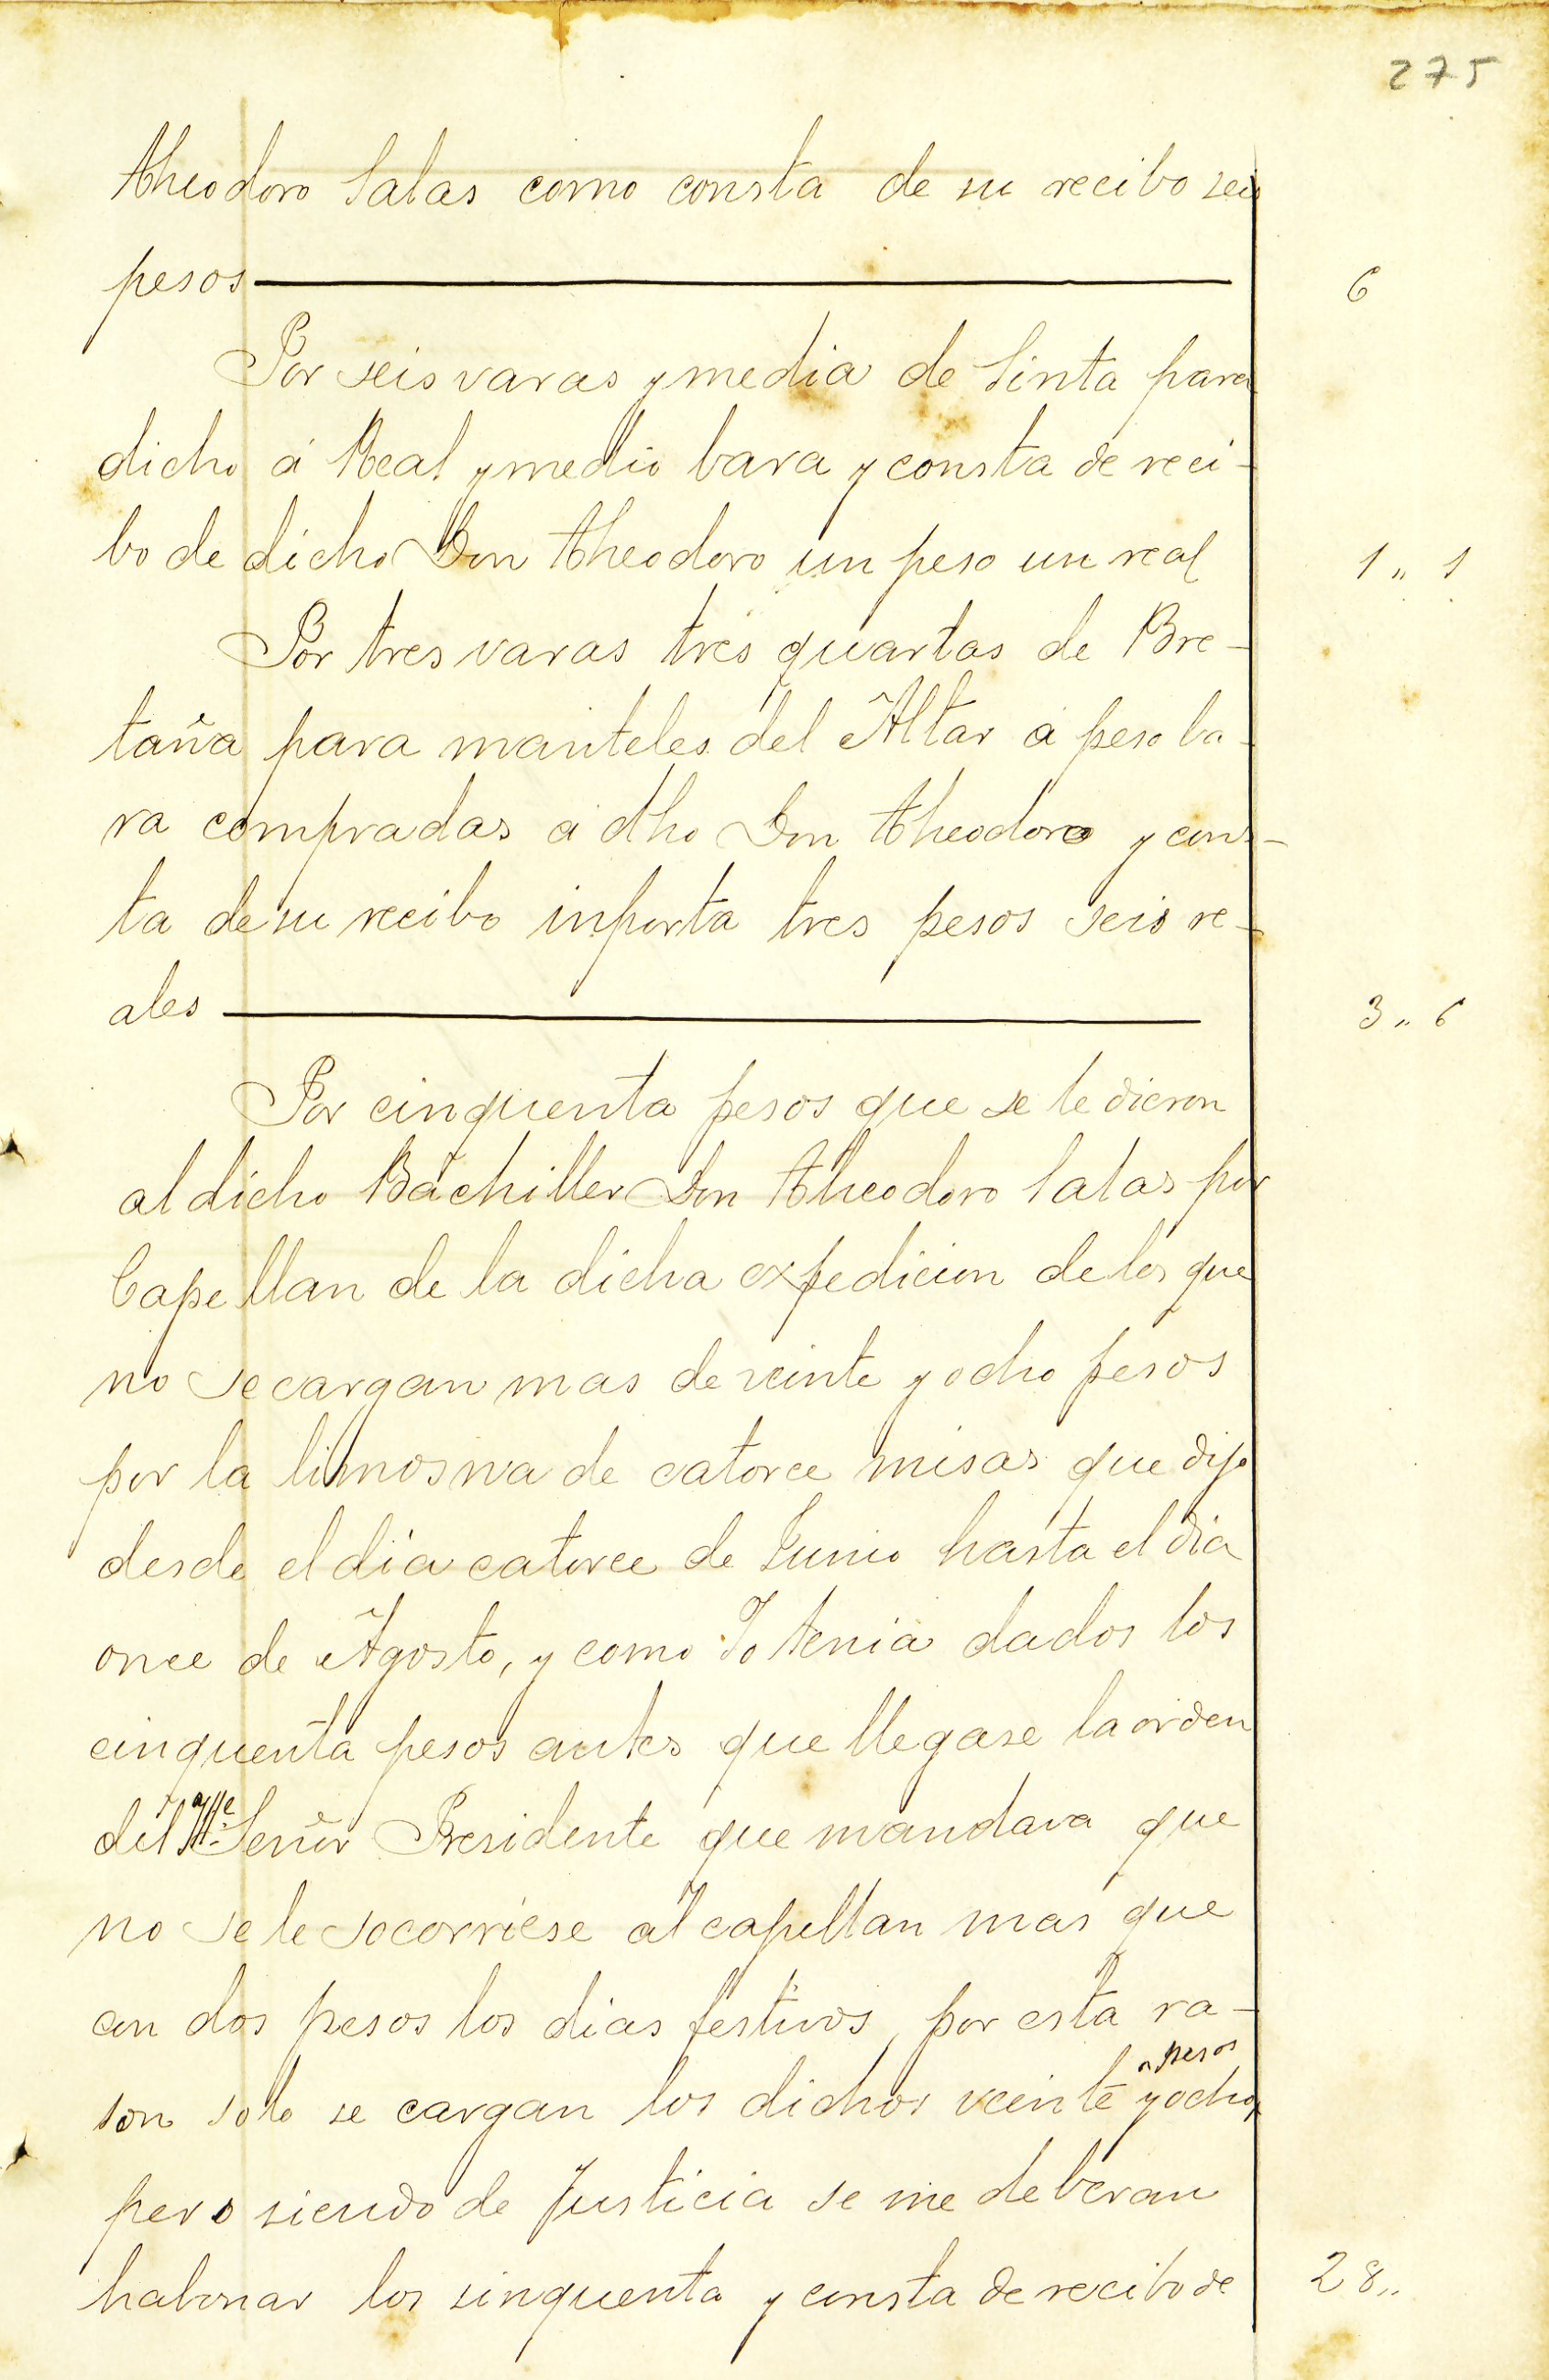 275
Theodoro Salas como consta de su recibo seis
pesos 6
Por seis varas y media de Sinta para
dicho á Real y medio bara y consta de reci-
bo de dicho Don Theodoro un peso un real 1 " 1
Por tres varas tres quartas de Bre-
taña para manteles del Altar á peso ba-
ra compradas á dho Don Theodoro y cons-
ta de su recibo inporta tres pesos seis re-
ales 3 " 6
Por cinquenta pesos que se le dieron
al dicho Bachiller Don Theodoro Salas por
Capellan de la dicha expedicion de los que
no se cargan mas de veinte y ocho pesos
por la limosna de catorce misas que dijo
desde el dia catorce de Junio hasta el dia
once de Agosto, y como Yo tenia dados los
cinquenta pesos antes que llegase la orden
del Señor Presidente que mandava que
no se le socorriese al capellan mas que
con dos pesos los dias festivos, por esta ra-
son solo se cargan los dichos veinte y ocho pesos
pero siendo de Justicia se me deberan
habonar los sinquenta y consta de recibo de 28 "